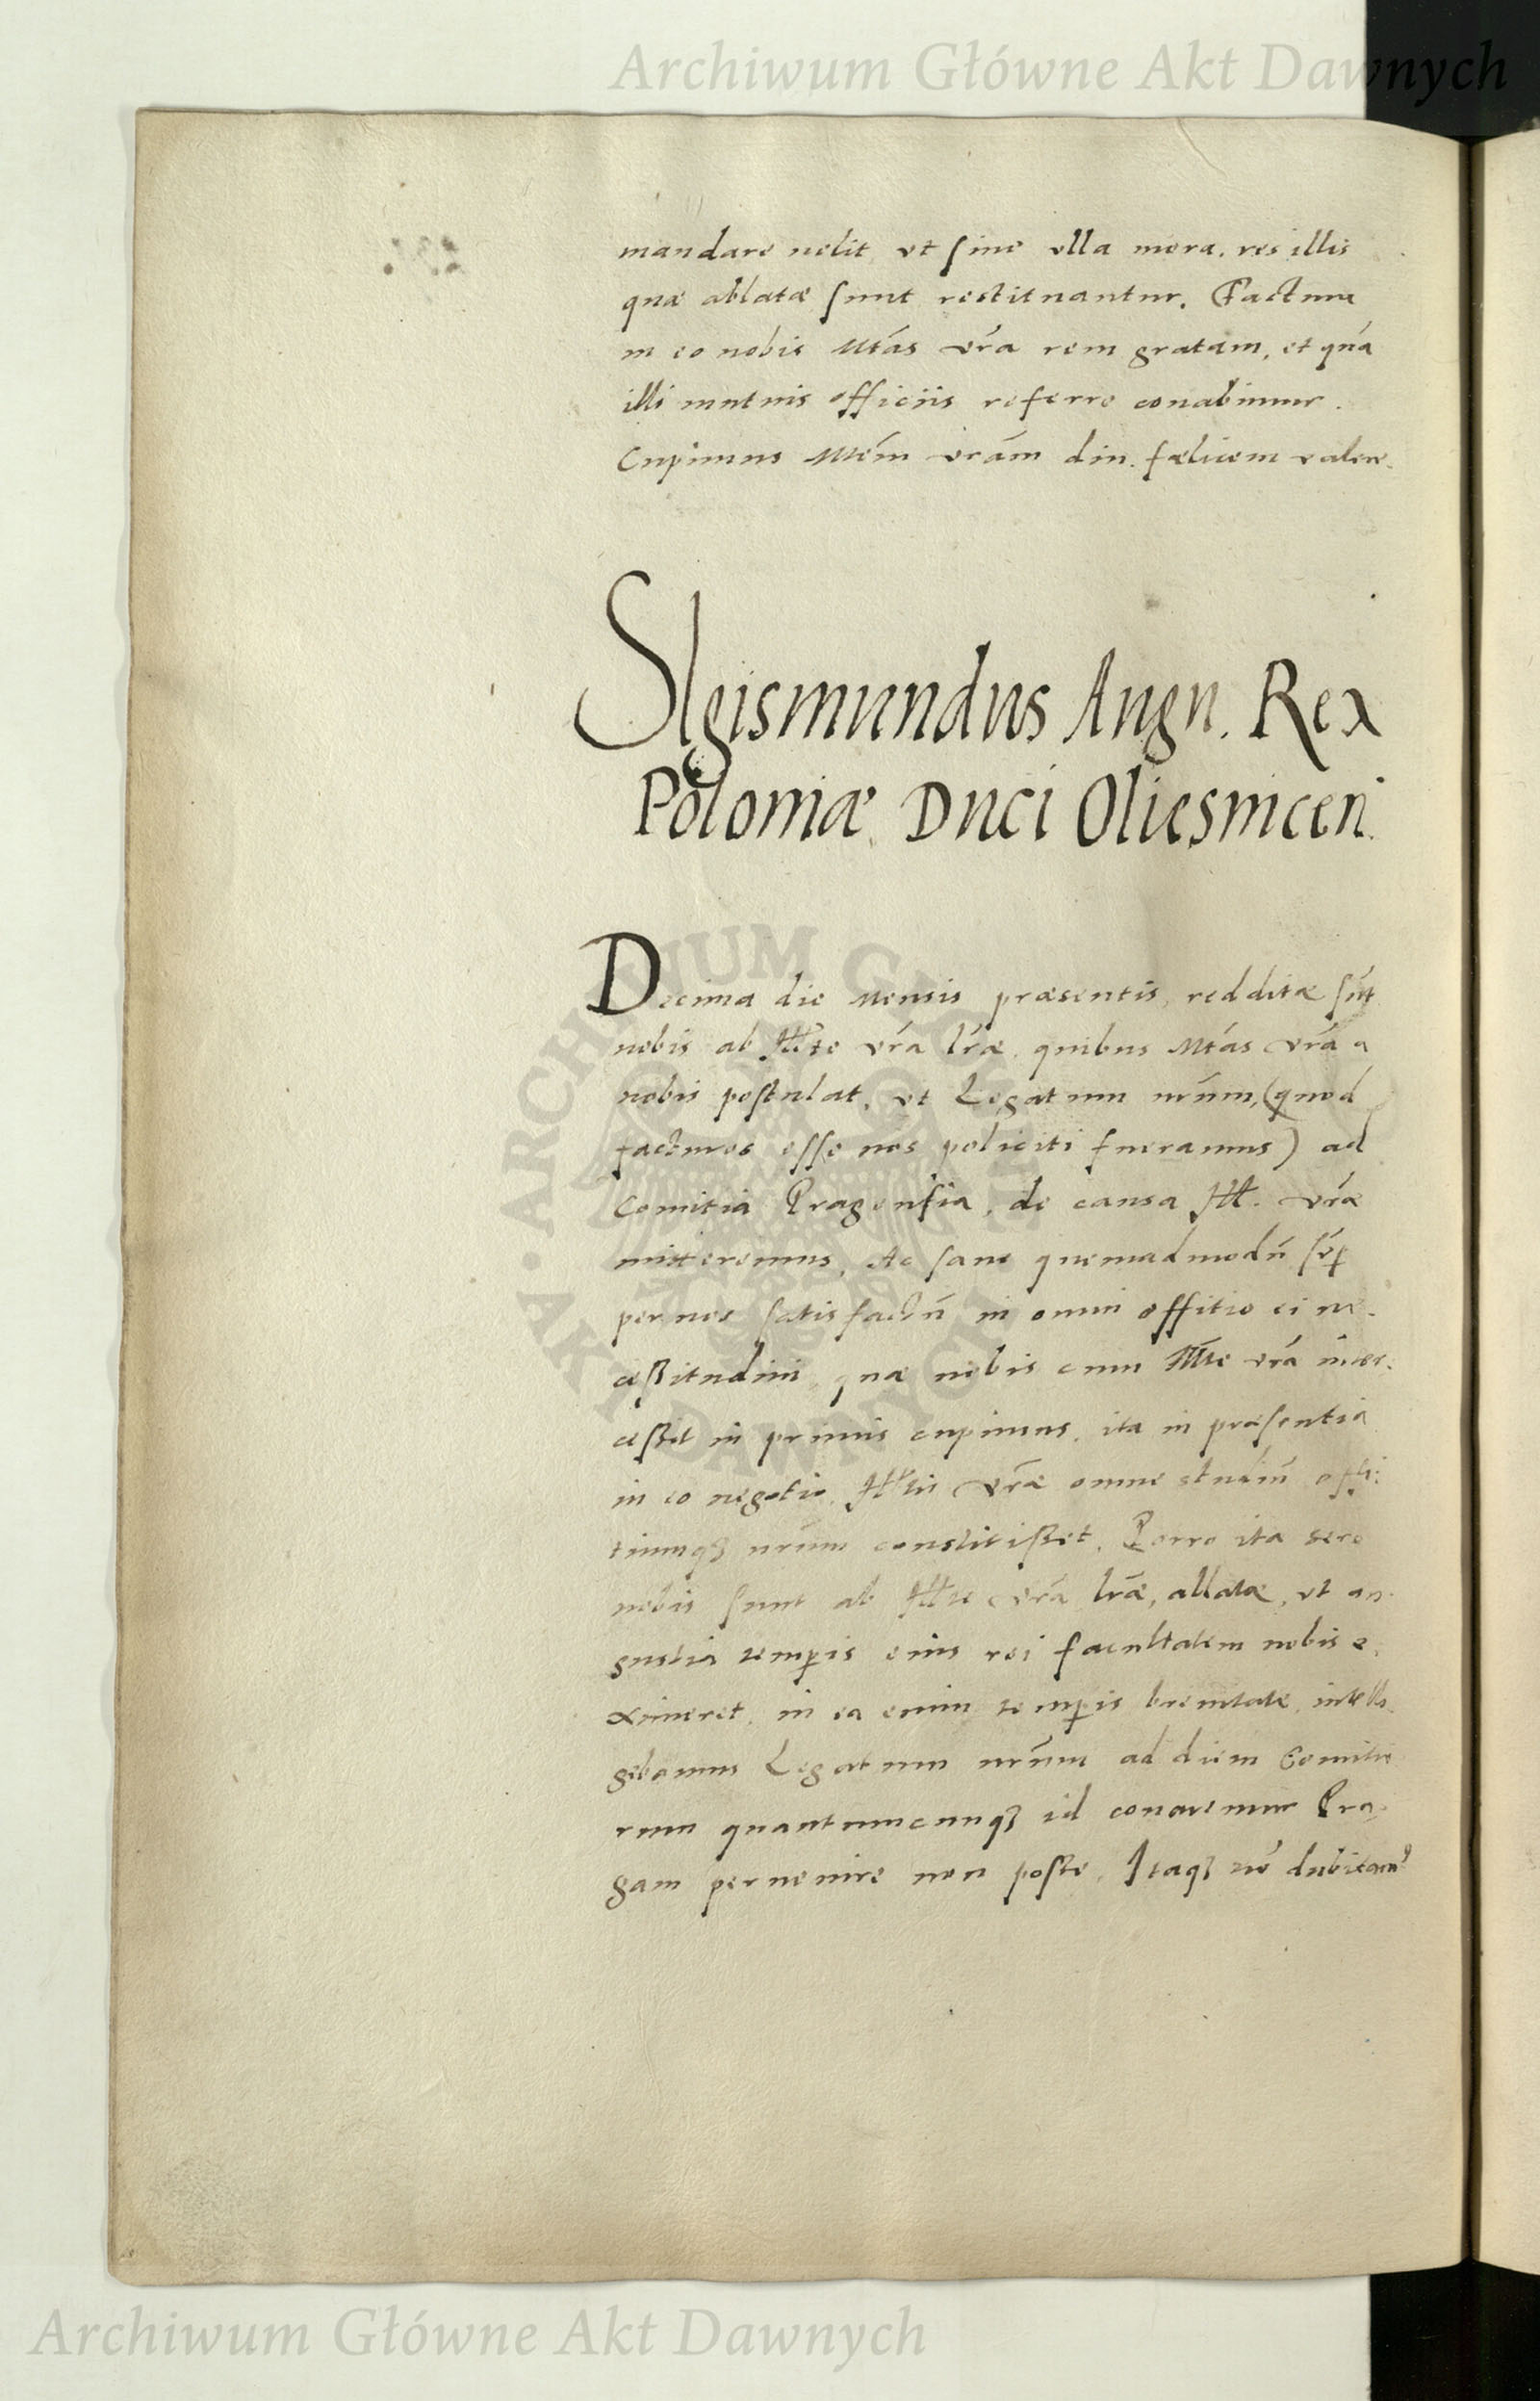 Archiwum Główne Akt Dawnych
mandare velit, vt sine vlla mora, res illis
quæ ablatæ sunt restituantur. Factura
in eo nobis Mtás vrá rem gratam, et quá
illi mutuis officiis referre conabimur.
Cupimus Mtém vrám diu fælicem valere.
SIgismundus Augu. Rex
Poloniæ Duci Oliesnicen.
Decima die Mensis præsentis, redditæ sũt
nobis ab Illte vrá lræ, quibus Mtás vrá a
nobis postulat, vt Legatum nrũm, (quod
facturos esse nos policiti fueramus) ad
Comitia Pragensia, de causa Ill. vræ
mitteremus, Ac sane quemadmodũ sẽp
per nos satisfactũ in omni offitio ei ne-
ceßitudini, quæ nobis cum Mte vrá inter-
ceßit in primis cupimus, ita in præsentia
in eo negotio, Illti vræ omne studiũ offi-
tiumqȝ nrũm constitißet. Porro ita sero
nobis sunt ab Illte vrá lræ, allatæ, vt an-
gustia temꝑis eius rei facultatem nobis e-
ximeret, in ea enim temꝑis breuitate, intelli-
gebamus Legatum nrũm ad diem Comitio
rum quantumcunqȝ id conaremur Pra-
gam peruenire non poße. Itaqȝ nõ dubitam9
ARCHIWUM GŁÓWNE AKT DAWNYCH
Archiwum Główne Akt Dawnych